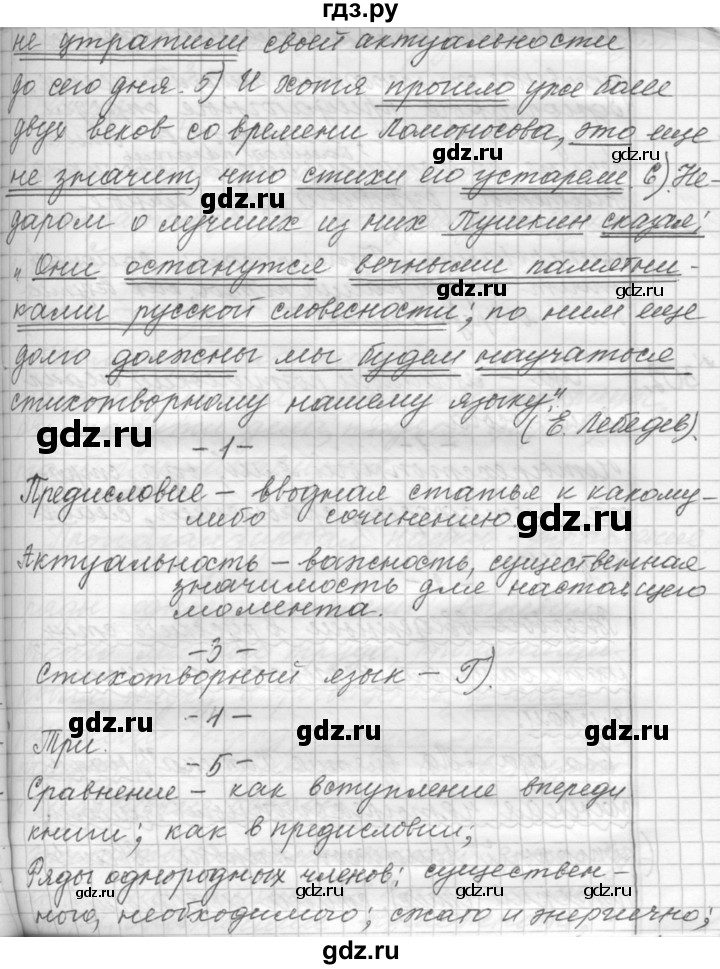 гдз.ру
не утратили своей актуальности
до сего дня. 5) И хотя прошло уже более
двух веков со времени Ломоносова, это еще
gdz.ru gdz.ru
не значит, что стихи его устарели. 6) Не-
даром о лучших из них Пушкин сказал:
gdz.ru gdz.ru
„Они останутся вечными памятни-
gdz.ru gdz.ru
ками русской словесности; по ним еще
долго должны мы будем научаться
стихотворному нашему языку".
(Е. Лебедев).
gdz.ru
-1-
Предисловие – вводная статья к какому-
либо сочинению
gdz.ru
Актуальность – важность, существенная
значимость для настоящего
момента.
-3-
Стихотворный язык – Г).
gdz.ru gdz.ru gdz.ru
-4-
Три.
-5-
Сравнение – как вступление впереди
книги; как в предисловии;
Ряды однородных членов: существен-
gdz.ru gdz.ru gdz.ru
ного, необходимого; сжато и энергично;
гдз.ру